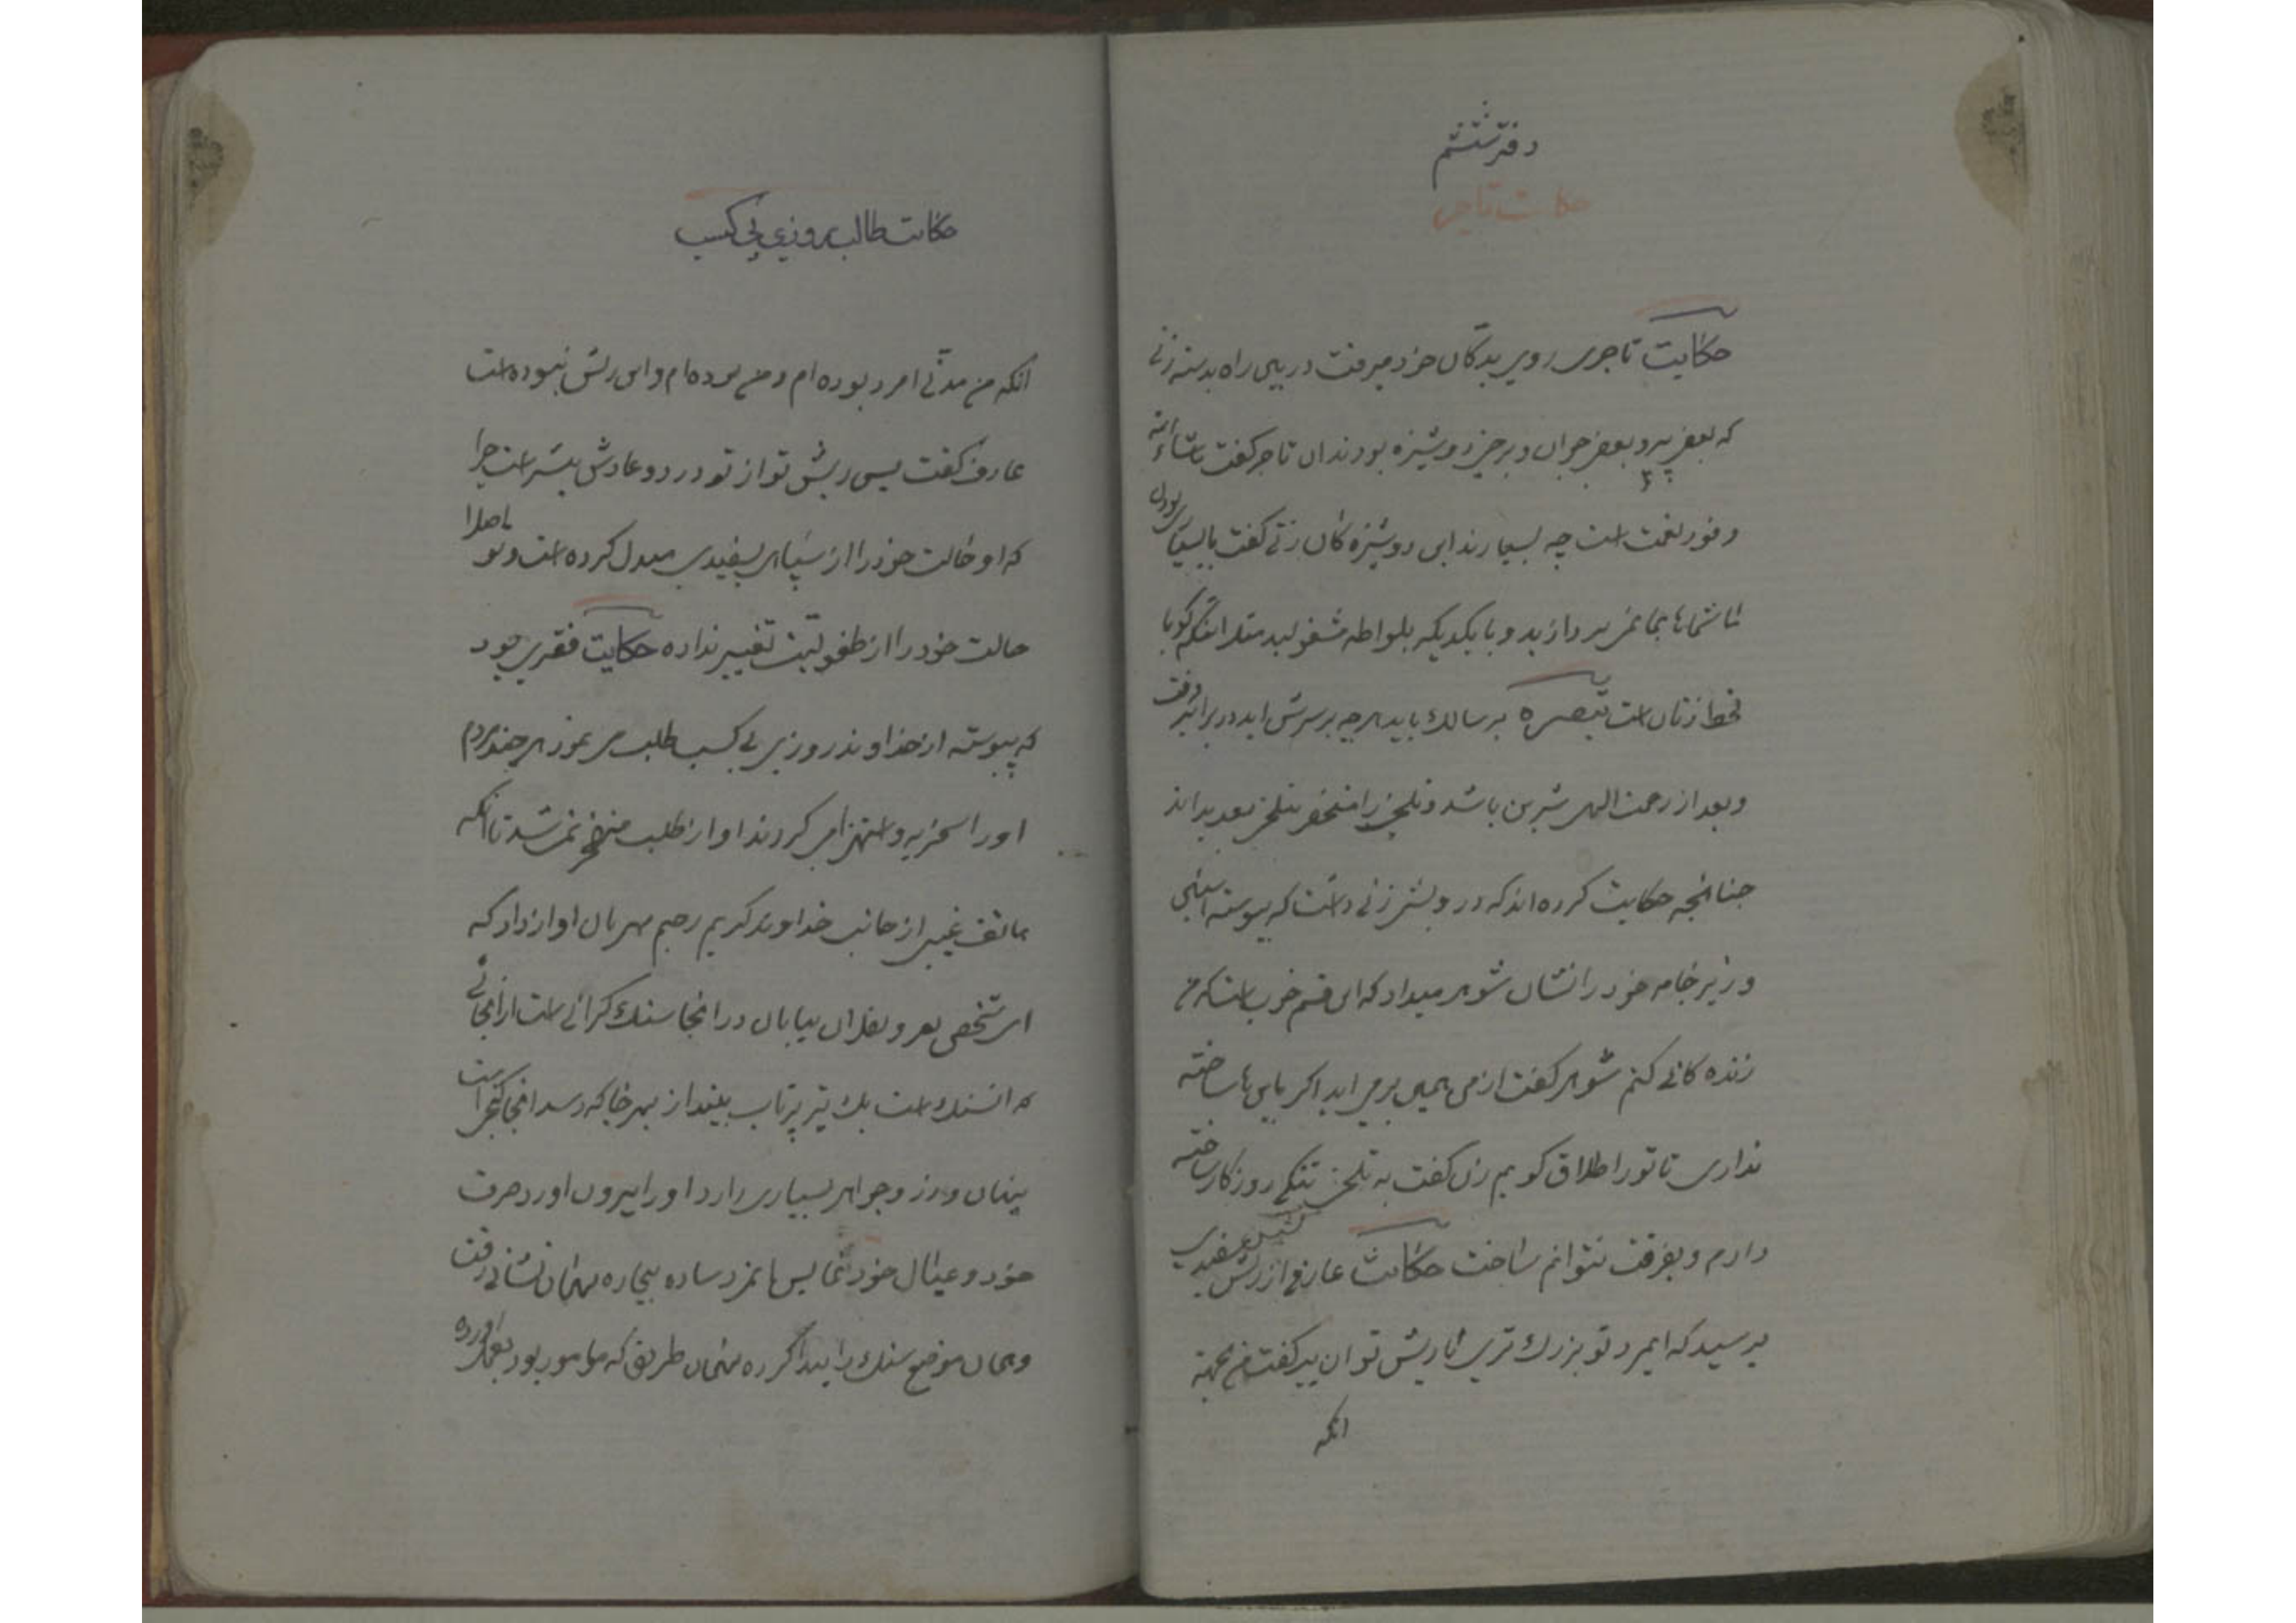 دفتر ششم
حکایت تاجر
حکایت تاجری روی بدکان خود میرفت در بین راه بدسته زنی
که بعضی پیر و بعضی جوان و برخی دوشیزه بودند ان تاجر گفت ماشاءالله
وفور نعمت است چه بسیارند این دوشیزه کان زنی گفت با بسیاری بودن
ما شماها بما نمی پردازید و با یکدیگر بلواطه مشغولید مثل اینکه گویا
قحط زنان است تبصره بر سالك باید هرچه بر سرش اید در برابر فرقت
و بعد از رحمت الهی شیرین باشد و تلخی را منحصر بتلخی بعد بداند
چنانچه حکایت کرده اند که درویشی زنی داشت که پیوسته استین
و زیر جامه خود را نشان شوهر میداد که این قسم خوب است که من
زنده کانی کنم شوهر گفت از من همین بر می اید اکر باین ها ساخته
نداری تا تو را طلاق گویم زن گفت به تلخی تنگی روزکار ساخته
دارم و بفرقت نتوانم ساخت حکایت عارفی از کشیش ریش سفیدی
پرسید که ایمرد تو بزرك تری یا ریش تو ان پیر گفت من بجهة
انکه
حکایت طالب روزی بی کسب
انکه من مدتی امرد بوده ام و من بوده ام و این ریش نبوده است
عارف گفت پس ریش تو از تو در دو عادش بیشتر است چرا
که او حالت خود را از سیاهی بسفیدی مبدل کرده است و تو اصلا
حالت خود را از طفولیت تغییر نداده حکایت فقیری بود
که پیوسته از خداوند روزی بی کسب طلب می نمود هر چند مردم
او را سخریه و استهزا می کردند او از طلب منفجر نمی شد تا انکه
هاتف غیبی از جانب خداوند کریم رحیم مهربان اواز داد که
ای شخص برو بفلان بیابان در انجا سنك کرانی است از انجائی
که انسنك است یك تیر پرتاب بینداز بهر جا که رسد انجا کنجی است
پنهان و زر و جواهر بسیاری دارد او را بیرون اور و صرف
خود و عیال خود نمای پس ان مرد ساده بیچاره بهمان نشانی رفت
و همان موضع سنك را پیدا کرده بهمان طریق که مامور بود بعمل اورده